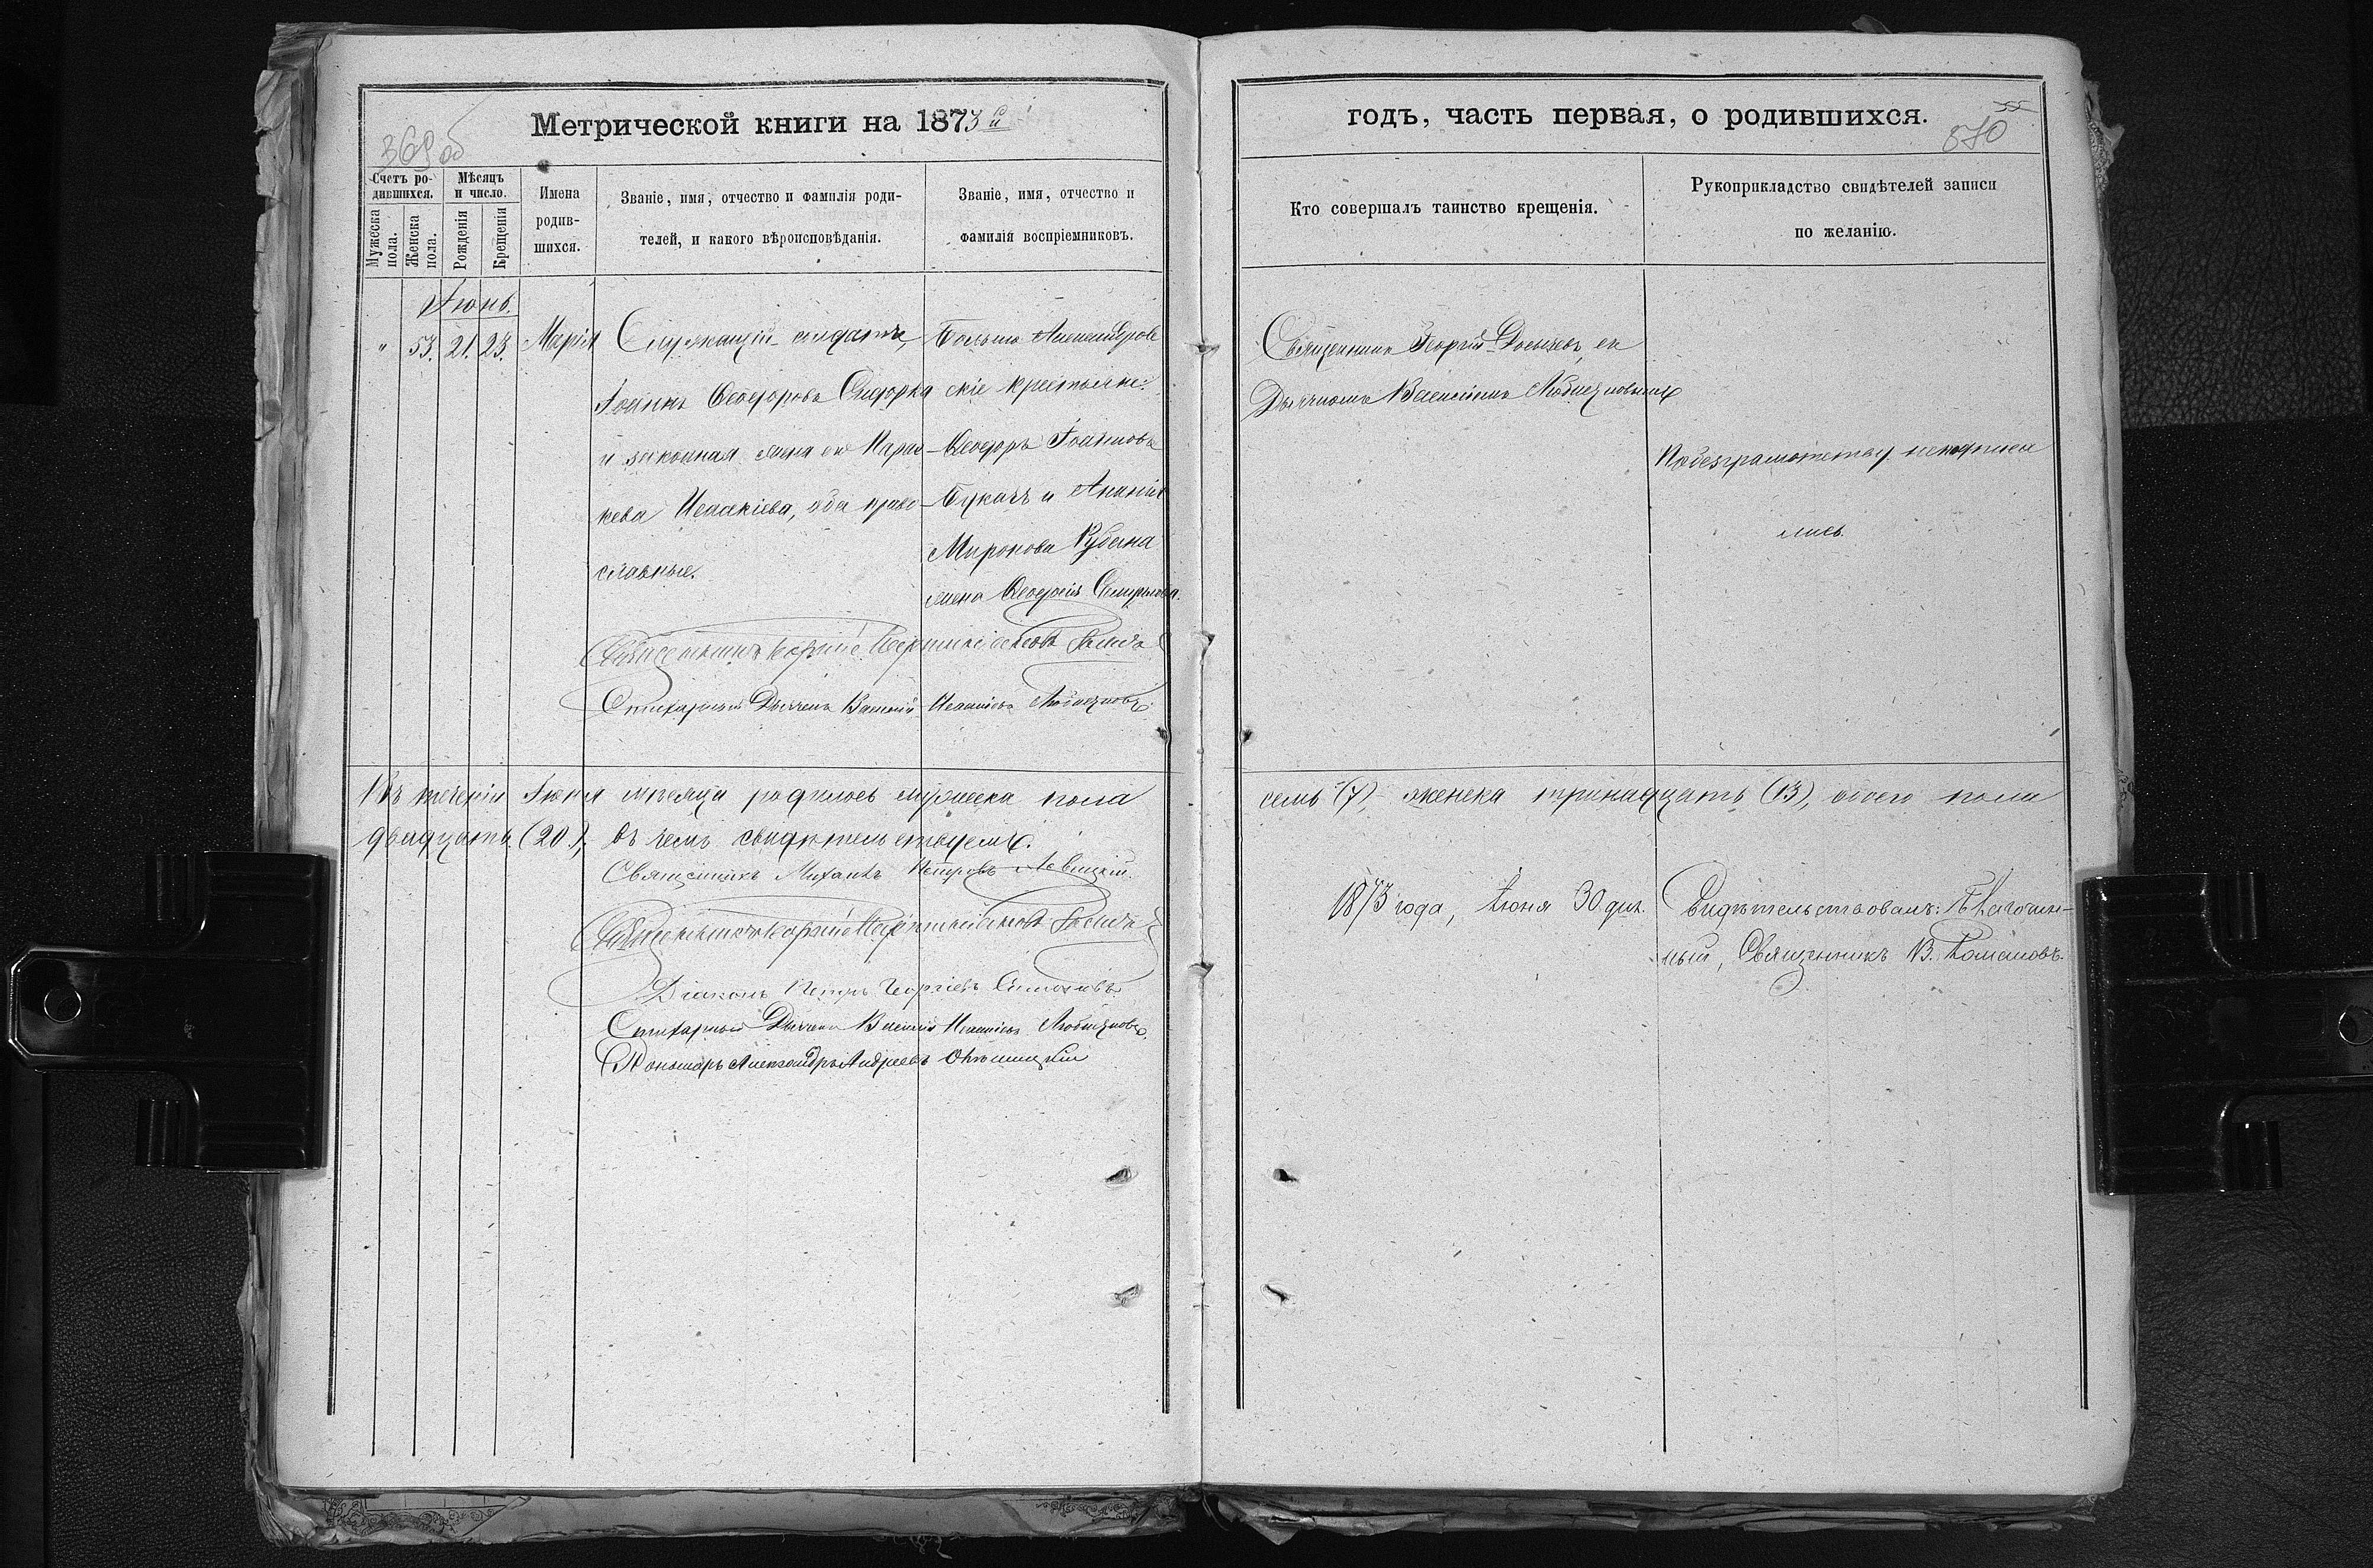 Метрической книги на 1873й
369 об
Счетъ ро-
дившихся.
Мѣсяцъ
и число.
Мужеска
пола.
Женска
пола.
Рожденія
Крещенія
Имена
родив-
шихся.
Званіе, имя, отчество и фамилія роди-
телей, и какого вѣроисповѣданія.
Званіе, имя, отчество и
фамилія воспріемниковъ.
Іюнь.
" 53. 21. 23. Марія
Служащій солдатъ,
Іоаннъ Ѳеодоровъ Сидорка
и законная жена его Парас-
кева Исакіева, оба право-
славные.
Больше Александров
скіе крестьяне:
Ѳеодоръ Іоанновъ
Букачъ и Ананія
Миронова
жена Ѳеодосія
Священникъ Георгій
Стихарный Дьячекъ Василій Іоанновъ
Въ теченіи Іюня мѣсяца родилось мужеска пола
двадцать (20), въ чемъ свидѣтельствуемъ.
Священникъ Михаилъ Петровъ Левицкій.
Священникъ Георгій
Діаконъ Петръ Георгіевъ
Стихарный Дьячекъ Василій Іоанновъ
Пономарь Александръ Андреевъ
годъ, часть первая, о родившихся.
55
370
Кто совершалъ таинство крещенія.
Рукоприкладство свидѣтелей записи
по желанію.
Священникъ Георгій съ
Дьячкомъ Василіемъ
По безграмотству неподписа
лись.
семь (7), женска тринадцать (13), обоего пола
1873 года, Іюня 30 дня.
Свидѣтельствовалъ: Благочин-
ный, Священникъ В. Романовъ.